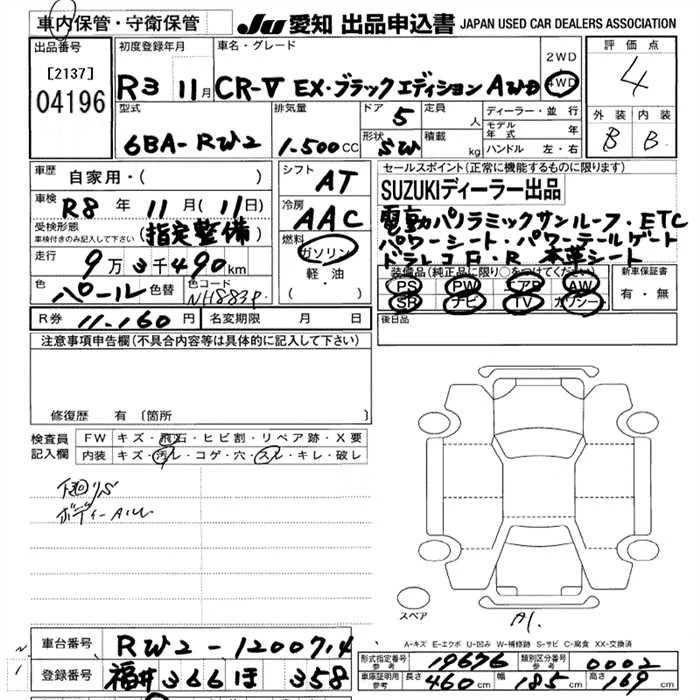 車内保管・守衛保管
JU 愛知 出品申込書 JAPAN USED CAR DEALERS ASSOCIATION
出品番号
[2137]
04196
初度登録年月
R3 11月
車名・グレード
CR-V EX・ブラックエディション AWD
2WD
4WD
評価点
4
型式
6BA-RW2
排気量
1.500 CC
ドア
5
定員
人
形状
SW
積載
kg
ディーラー・並行
モデル
年式
年
ハンドル 左・右
外装
B
内装
B
車歴
自家用・( )
車検
R8年 11月 (11日)
受検形態
車検付きのみ記入して下さい
(指定整備)
走行
9万3千490km
色
パール
色替
色コード
NH883P
シフト
AT
冷房
AAC
燃料
ガソリン
軽・油
・( )
セールスポイント(正常に機能するものに限ります)
SUZUKIディーラー出品
電動パノラミックサンルーフ・ETC
パワーシート・パワーテールゲート
ドラレコF・R 本革シート
装備品(純正品に限り○をつけてください)
PS PW エアB AW
SR ナビ TV カワシート
新車保証書
有・無
後日品
R券 11.160円
名変期限 月 日
注意事項申告欄(不具合内容等は具体的に記入して下さい)
修復歴 有 [箇所
検査員
記入欄
FW キズ・飛石・ヒビ割・リペア跡・X要
内装 キズ・汚レ・コゲ・穴・スレ・キレ・破レ
下廻りS
スペア
A1
A-キズ E-エクボ U-凹み W-補修跡 S-サビ C-腐食 XX-交換済
車台番号
RW2-1200714
登録番号
福井 366 ほ 358
形式指定番号
参考
19676
類別区分番号
参考
0002
車庫証明用
参考
長さ 460cm
幅 185cm
高さ 169cm